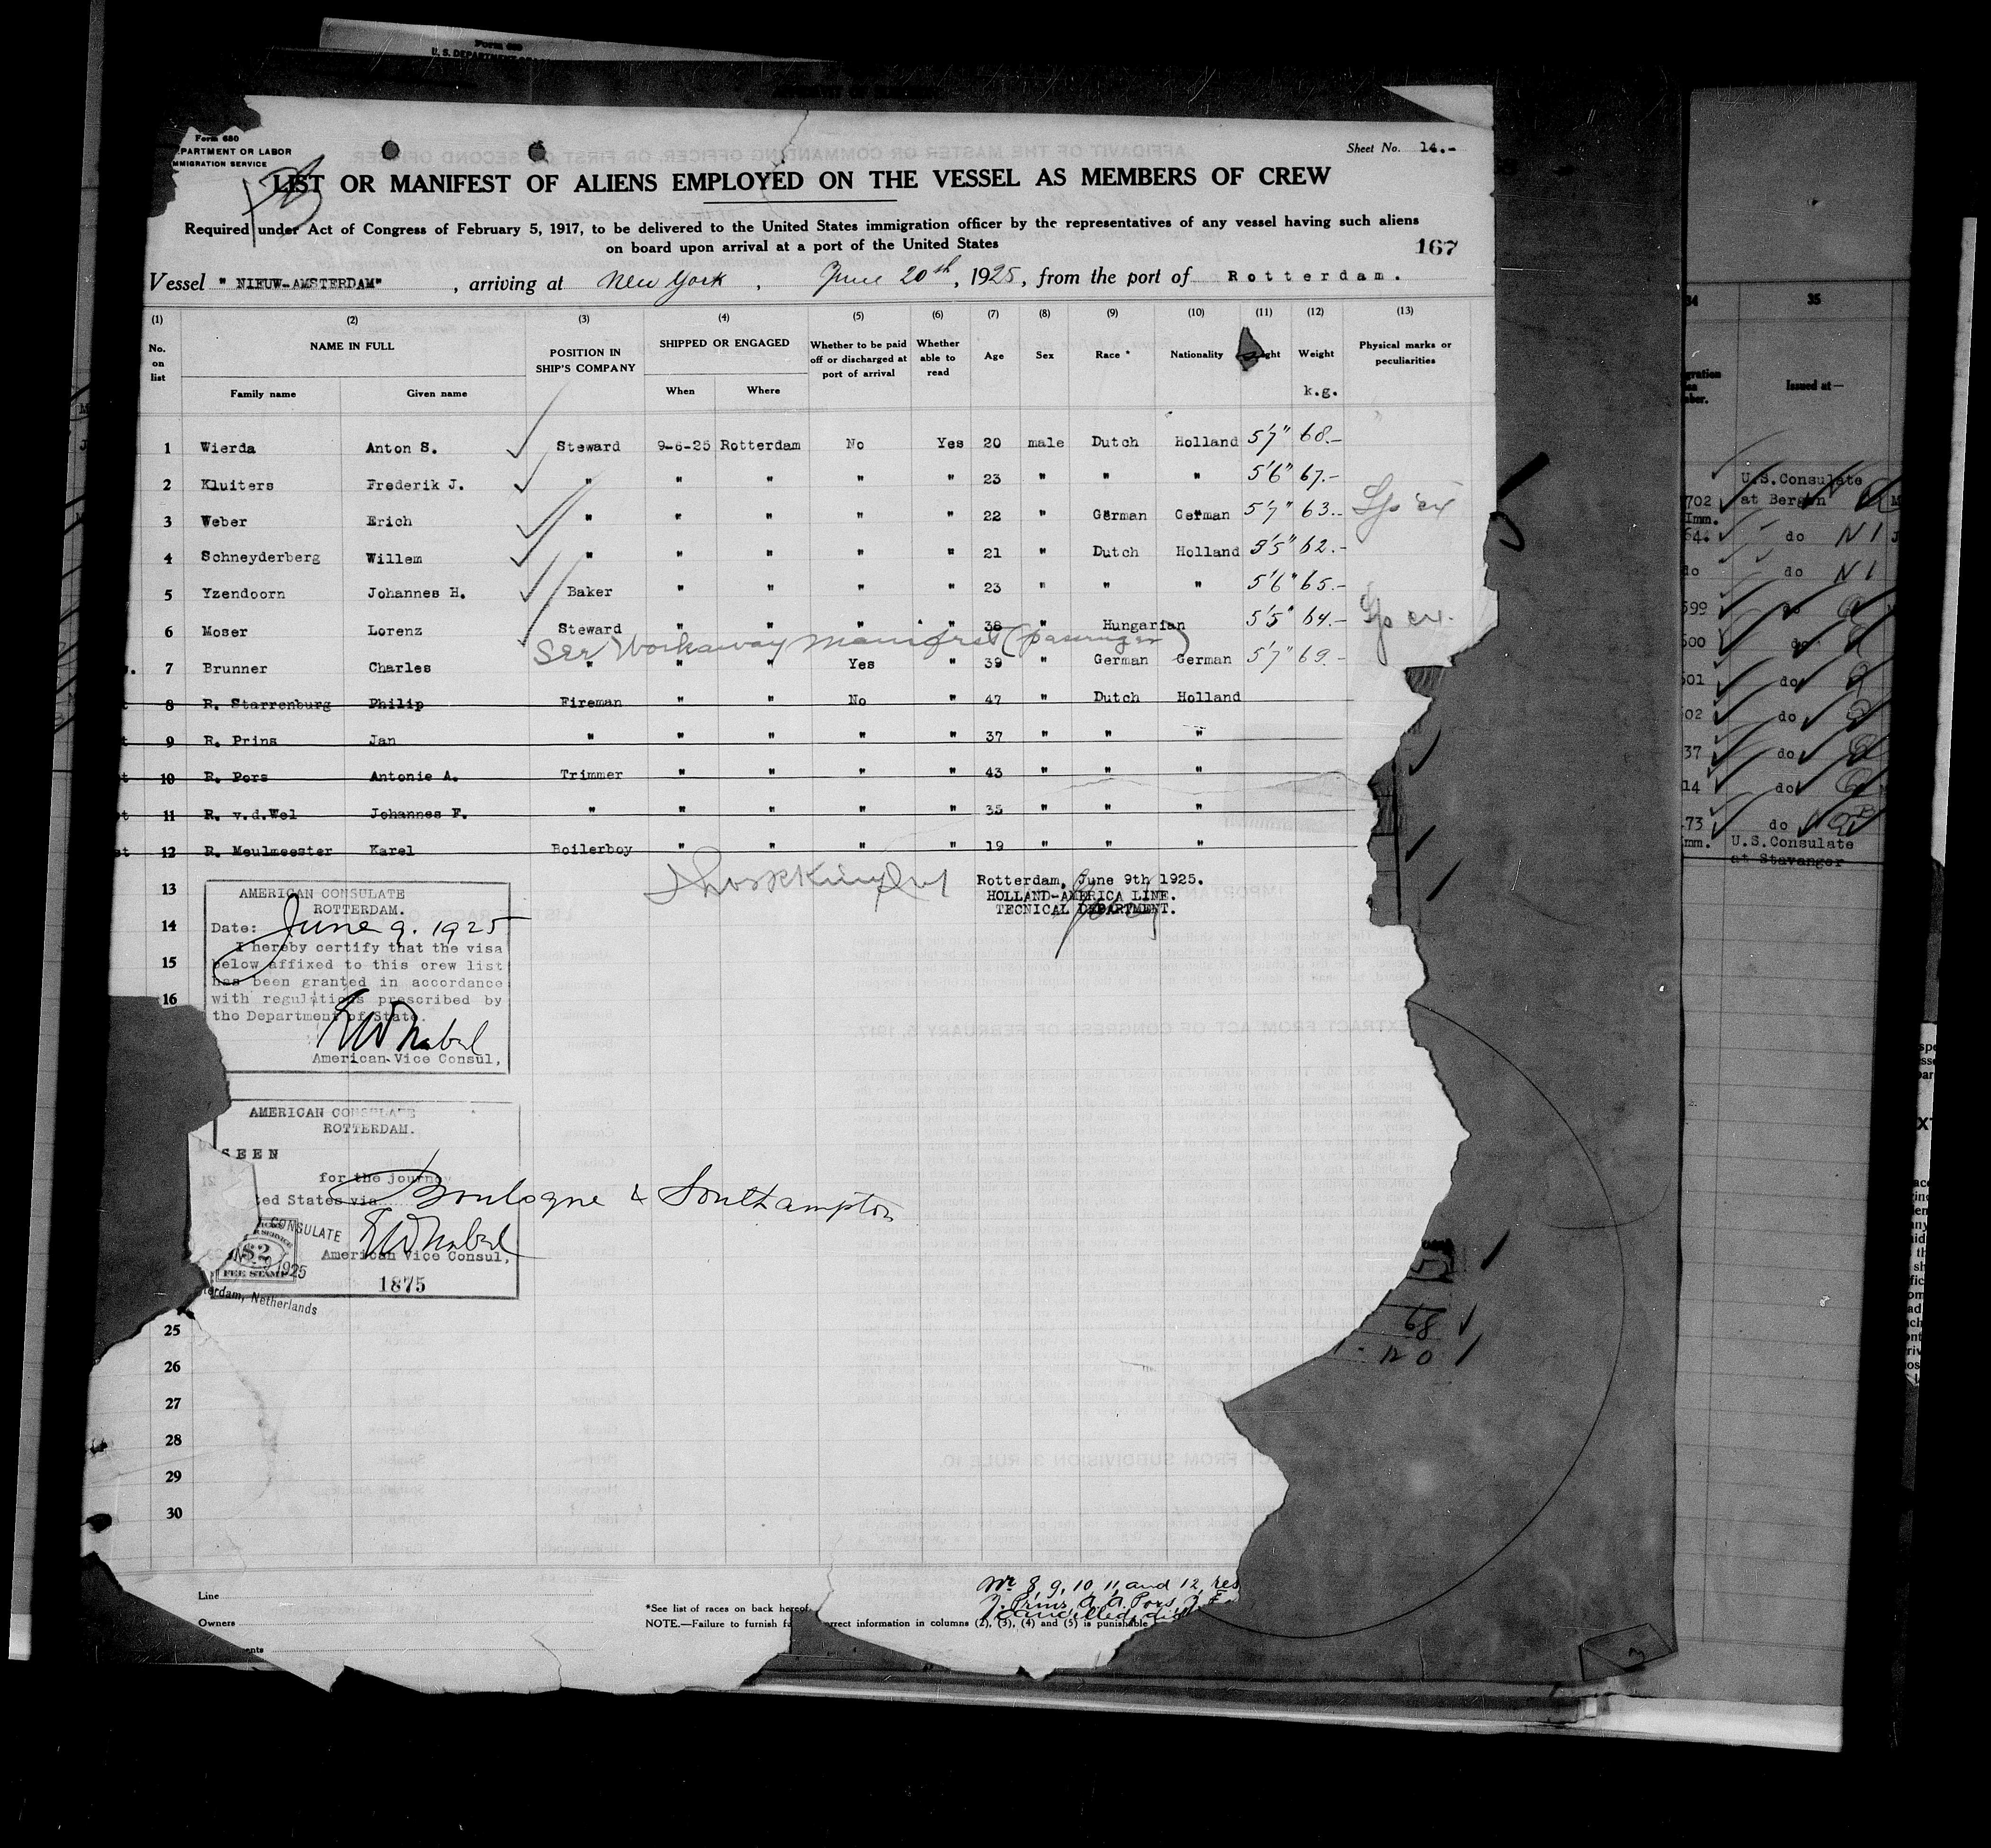 Form 680
U. S. DEPARTMENT OF
Form 680
PARTMENT OR LABOR
MMIGRATION SERVICE
Sheet No. 14.-
LIST OR MANIFEST OF ALIENS EMPLOYED ON THE VESSEL AS MEMBERS OF CREW
Required under Act of Congress of February 5, 1917, to be delivered to the United States immigration officer by the representatives of any vessel having such aliens
on board upon arrival at a port of the United States
167
Vessel "NIEUW-AMSTERDAM", arriving at New York, June 20th, 1925, from the port of Rotterdam.
(1) (2) (3) (4) (5) (6) (7) (8) (9) (10) (11) (12) (13)
No. on list NAME IN FULL POSITION IN SHIP'S COMPANY SHIPPED OR ENGAGED Whether to be paid off or discharged at port of arrival Whether able to read Age Sex Race * Nationality ght Weight Physical marks or peculiarities
Family name Given name When Where k.g.
1 Wierda Anton S. Steward 9-6-25 Rotterdam No Yes 20 male Dutch Holland 5'7" 68.-
2 Kluiters Frederik J. " " " " " 23 " " " 5'6" 67.-
3 Weber Erich " " " " " 22 " German German 5'7" 63.-
4 Schneyderberg Willem " " " " " 21 " Dutch Holland 5'5" 62.-
5 Yzendoorn Johannes H. Baker " " " " 23 " " " 5'6" 65.-
6 Moser Lorenz Steward " " " " 38 " Hungarian 5'5" 64.-
See Workaway manifest (passenger)
7 Brunner Charles " " " Yes " 39 " German German 5'7" 69.-
8 R. Starrenburg Philip Fireman " " No " 47 " Dutch Holland
9 R. Prins Jan " " " " " 37 " " "
10 R. Pors Antonie A. Trimmer " " " " 43 " " "
11 R. v.d.Wel Johannes F. " " " " " 35 " " "
12 R. Meulmeester Karel Boilerboy " " " " 19 " " "
13
14
15
16
Rotterdam, June 9th 1925.
HOLLAND-AMERICA LINE.
TECNICAL DEPARTMENT.
AMERICAN CONSULATE
ROTTERDAM.
Date: June 9. 1925
I hereby certify that the visa
below affixed to this crew list
has been granted in accordance
with regulations prescribed by
the Department of State.
American Vice Consul,
AMERICAN CONSULATE
ROTTERDAM.
SEEN
for the journey
ted States via Boulogne & Southampton
CONSULATE
American Vice Consul,
$2
FEE STAMP
1925
1875
terdam, Netherlands
25
26
27
28
29
30
Line
Owners
ents
*See list of races on back hereof.
NOTE.—Failure to furnish fu rrect information in columns (2), (3), (4) and (5) is punishable
Nr 8, 9, 10, 11, and 12, res
J. Prins, A. A. Pors, J. F.
cancelled, dis
68
120
34 35
gration
ber.
Issued at—
702 U.S.Consulate
at Bergen
Imm.
64. do N I
do do N I
599 do
500 do
501 do
02 do
37 do
14 do
473 do
mm. U.S.Consulate
at Stavanger